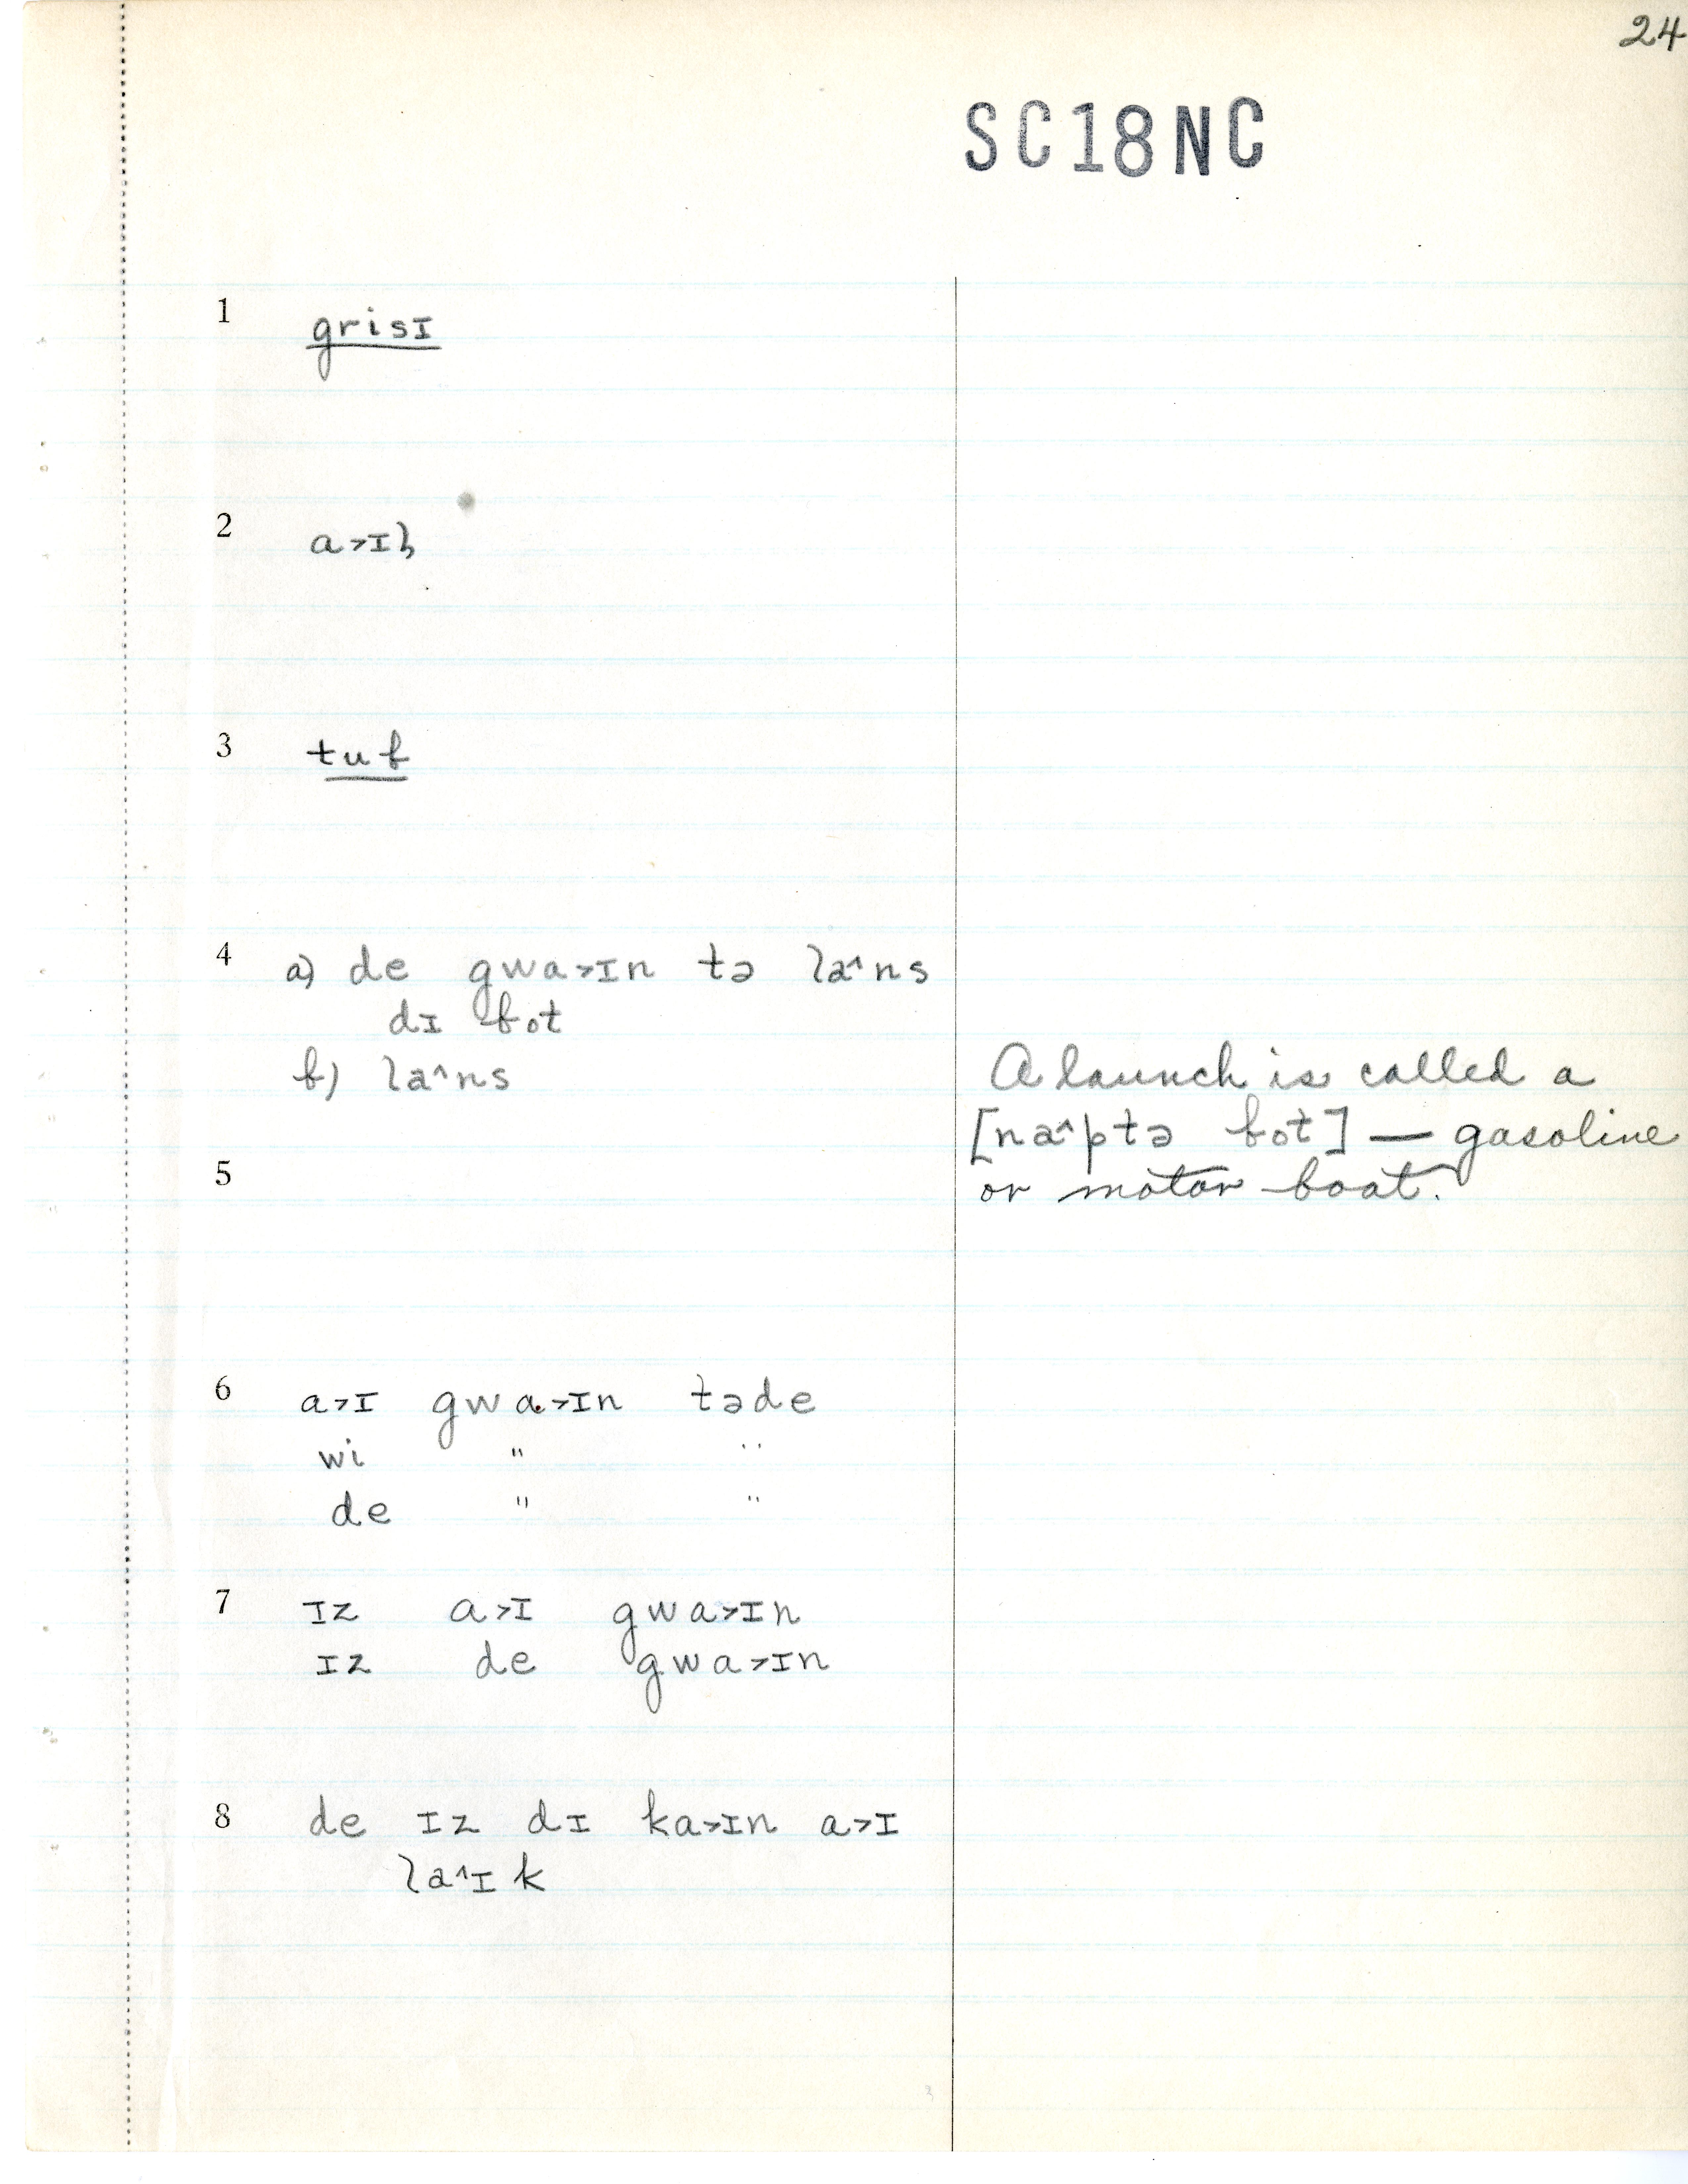 24
SC18NC
1 grisɪ
2 a˃ɪl̡
3 tub
4 a) de gwa˃ɪn tə la˄ns
dɪ bot
b) la˄ns
A launch is called a
[na˄ptə bot] — gasoline
or motor boat.
5
6 a˃ɪ gwa˃ɪn təde
wi " "
de " "
7 ɪz a˃ɪ gwa˃ɪn
ɪz de gwa˃ɪn
8 de ɪz dɪ ka˃ɪn a˃ɪ
la˄ɪk